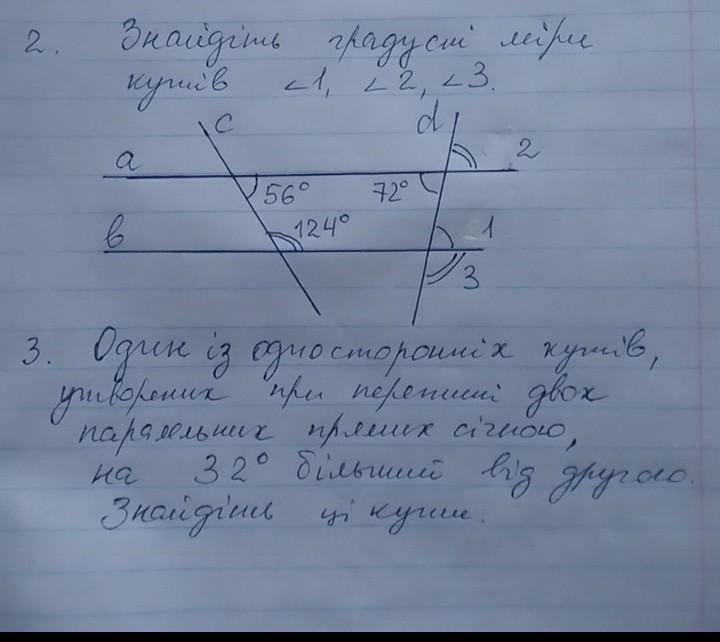 2. Знайдіть градусні міри
кутів ∠1, ∠2, ∠3.
c d
a 2
56° 72°
b 124° 1
3
3. Один із односторонніх кутів,
утворених при перетині двох
паралельних прямих січною,
на 32° більший від другого.
Знайдіть ці кути.